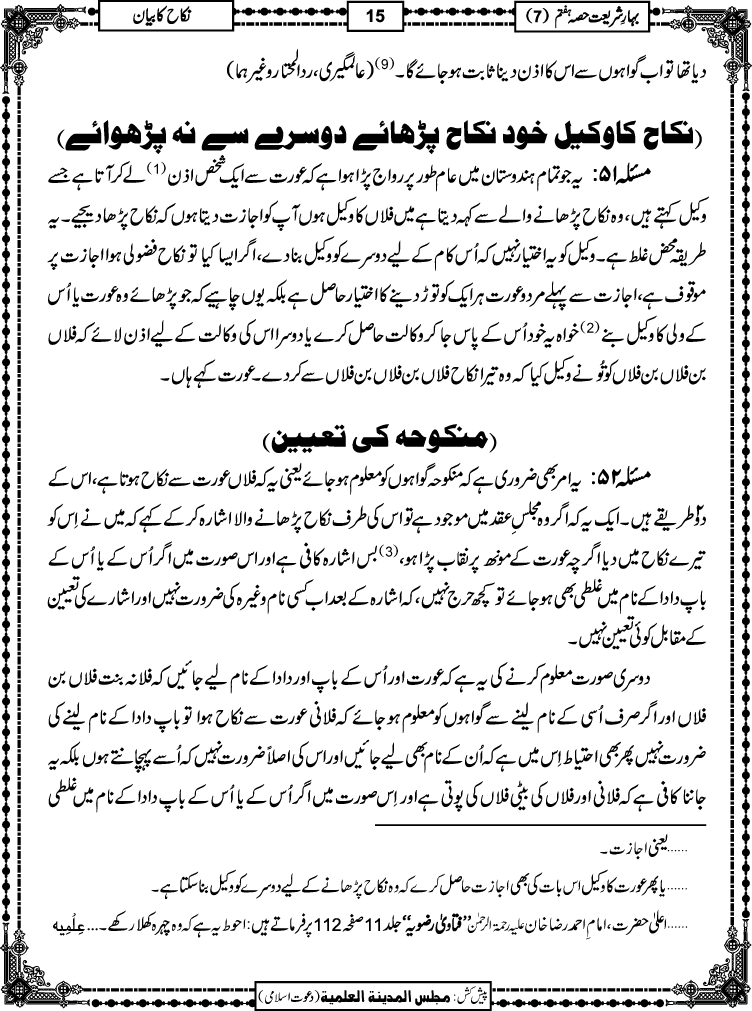 بہارِ شریعت حصہ ہفتم (7)
15
نکاح کا بیان
دیا تھا تو اب گواہوں سے اس کا اذن دینا ثابت ہو جائے گا۔(9) (عالمگیری، ردالمحتار وغیرہما)
(نکاح کا وکیل خود نکاح پڑھائے دوسرے سے نہ پڑھوائے)
مسئلہ ۵۱: یہ جو تمام ہندوستان میں عام طور پر رواج پڑا ہوا ہے کہ عورت سے ایک شخص اذن(1) لے کر آتا ہے جسے
وکیل کہتے ہیں، وہ نکاح پڑھانے والے سے کہہ دیتا ہے میں فلاں کا وکیل ہوں آپ کو اجازت دیتا ہوں کہ نکاح پڑھا دیجیے۔ یہ
طریقہ محض غلط ہے۔ وکیل کو یہ اختیار نہیں کہ اُس کام کے لیے دوسرے کو وکیل بنا دے، اگر ایسا کیا تو نکاح فضولی ہوا اجازت پر
موقوف ہے، اجازت سے پہلے مرد و عورت ہر ایک کو توڑ دینے کا اختیار حاصل ہے بلکہ یوں چاہیے کہ جو پڑھائے وہ عورت یا اُس
کے ولی کا وکیل بنے(2) خواہ یہ خود اُس کے پاس جا کر وکالت حاصل کرے یا دوسرا اس کی وکالت کے لیے اذن لائے کہ فلاں
بن فلاں بن فلاں کو تُو نے وکیل کیا کہ وہ تیرا نکاح فلاں بن فلاں بن فلاں سے کر دے۔ عورت کہے ہاں۔
(منکوحہ کی تعیین)
مسئلہ ۵۲: یہ امر بھی ضروری ہے کہ منکوحہ گواہوں کو معلوم ہو جائے یعنی یہ کہ فلاں عورت سے نکاح ہوتا ہے، اس کے
دو۲ طریقے ہیں۔ ایک یہ کہ اگر وہ مجلسِ عقد میں موجود ہے تو اس کی طرف نکاح پڑھانے والا اشارہ کر کے کہے کہ میں نے اِس کو
تیرے نکاح میں دیا اگرچہ عورت کے مونھ پر نقاب پڑا ہو،(3) بس اشارہ کافی ہے اور اس صورت میں اگر اُس کے یا اُس کے
باپ دادا کے نام میں غلطی بھی ہو جائے تو کچھ حرج نہیں، کہ اشارہ کے بعد اب کسی نام وغیرہ کی ضرورت نہیں اور اشارے کی تعیین
کے مقابل کوئی تعیین نہیں۔
دوسری صورت معلوم کرنے کی یہ ہے کہ عورت اور اُس کے باپ اور دادا کے نام لیے جائیں کہ فلانہ بنت فلاں بن
فلاں اور اگر صرف اُسی کے نام لینے سے گواہوں کو معلوم ہو جائے کہ فلانی عورت سے نکاح ہوا تو باپ دادا کے نام لینے کی
ضرورت نہیں پھر بھی احتیاط اِس میں ہے کہ اُن کے نام بھی لیے جائیں اور اس کی اصلاً ضرورت نہیں کہ اُسے پہچانتے ہوں بلکہ یہ
جاننا کافی ہے کہ فلانی اور فلاں کی بیٹی فلاں کی پوتی ہے اور اِس صورت میں اگر اُس کے یا اُس کے باپ دادا کے نام میں غلطی
......یعنی اجازت۔
......یا پھر عورت کا وکیل اس بات کی بھی اجازت حاصل کرے کہ وہ نکاح پڑھانے کے لیے دوسرے کو وکیل بنا سکتا ہے۔
......اعلیٰ حضرت، امام احمد رضا خان علیہ رحمۃ الرحمٰن ’’فتاویٰ رضویہ‘‘ جلد 11 صفحہ 112 پر فرماتے ہیں: احوط یہ ہے کہ وہ چہرہ کھلا رکھے۔... عِلْمِیہ
پیش کش: مجلس المدینۃ العلمیۃ (دعوت اسلامی)